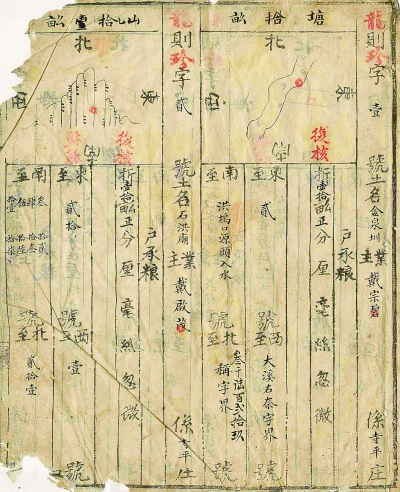 龍則珍字壹號土名金泉圳
業主戴宗碧
係寺平庄
戶承粮
塘拾畝
北
東
後核
折實拾畝正分厘毫絲忽微
東至貳號
西至大溪右奈字界號
南至洪塢口源頭入水
北至叁千陸百弍拾玖
稱字界號
龍則珍字貳號土名石洪廟
業主戴啟茂
係寺平庄
戶承粮
山拾壹畝
北
東
西
後核
折實壹拾畝正分厘毫絲忽微
東至貳拾號
西至壹號
南至
北至貳拾壹號